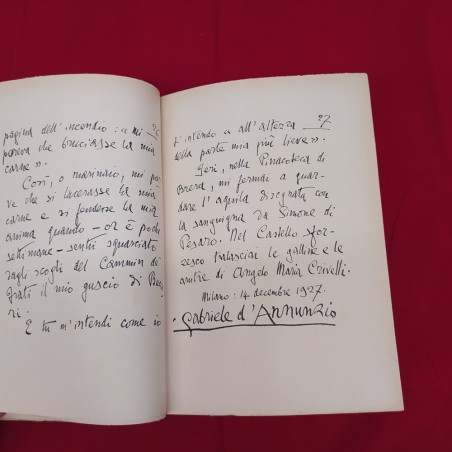 26
pagina dell'incendio: « mi
pareva che bruciasse la mia
carne ».
Così, o marinaio, mi par-
ve che si lacerasse la mia
carne e si fendesse la mia
anima quando – or è poche
settimane – sentii squarciato
dagli scogli del Cammin de'
Frati il mio guscio di Bug-
ri.
E tu m'intendi come io
27
t'intendo « all'altezza
della parte mia più lieve ».
Jeri, nella Pinacoteca di
Brera, mi fermai a guar-
dare l'aquila disegnata con
la sanguigna da Simone di
Pesaro. Nel Castello sfor-
zesco tralasciai le galline e le
anitre di Angelo Maria Crivelli.
Milano: 14 decembre 1927.
Gabriele d'Annunzio